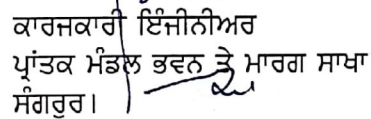 ਕਾਰਜਕਾਰੀ ਇੰਜੀਨੀਅਰ
ਪ੍ਰਾਂਤਕ ਮੰਡਲ ਭਵਨ ਤੇ ਮਾਰਗ ਸਾਖਾ
ਸੰਗਰੂਰ।